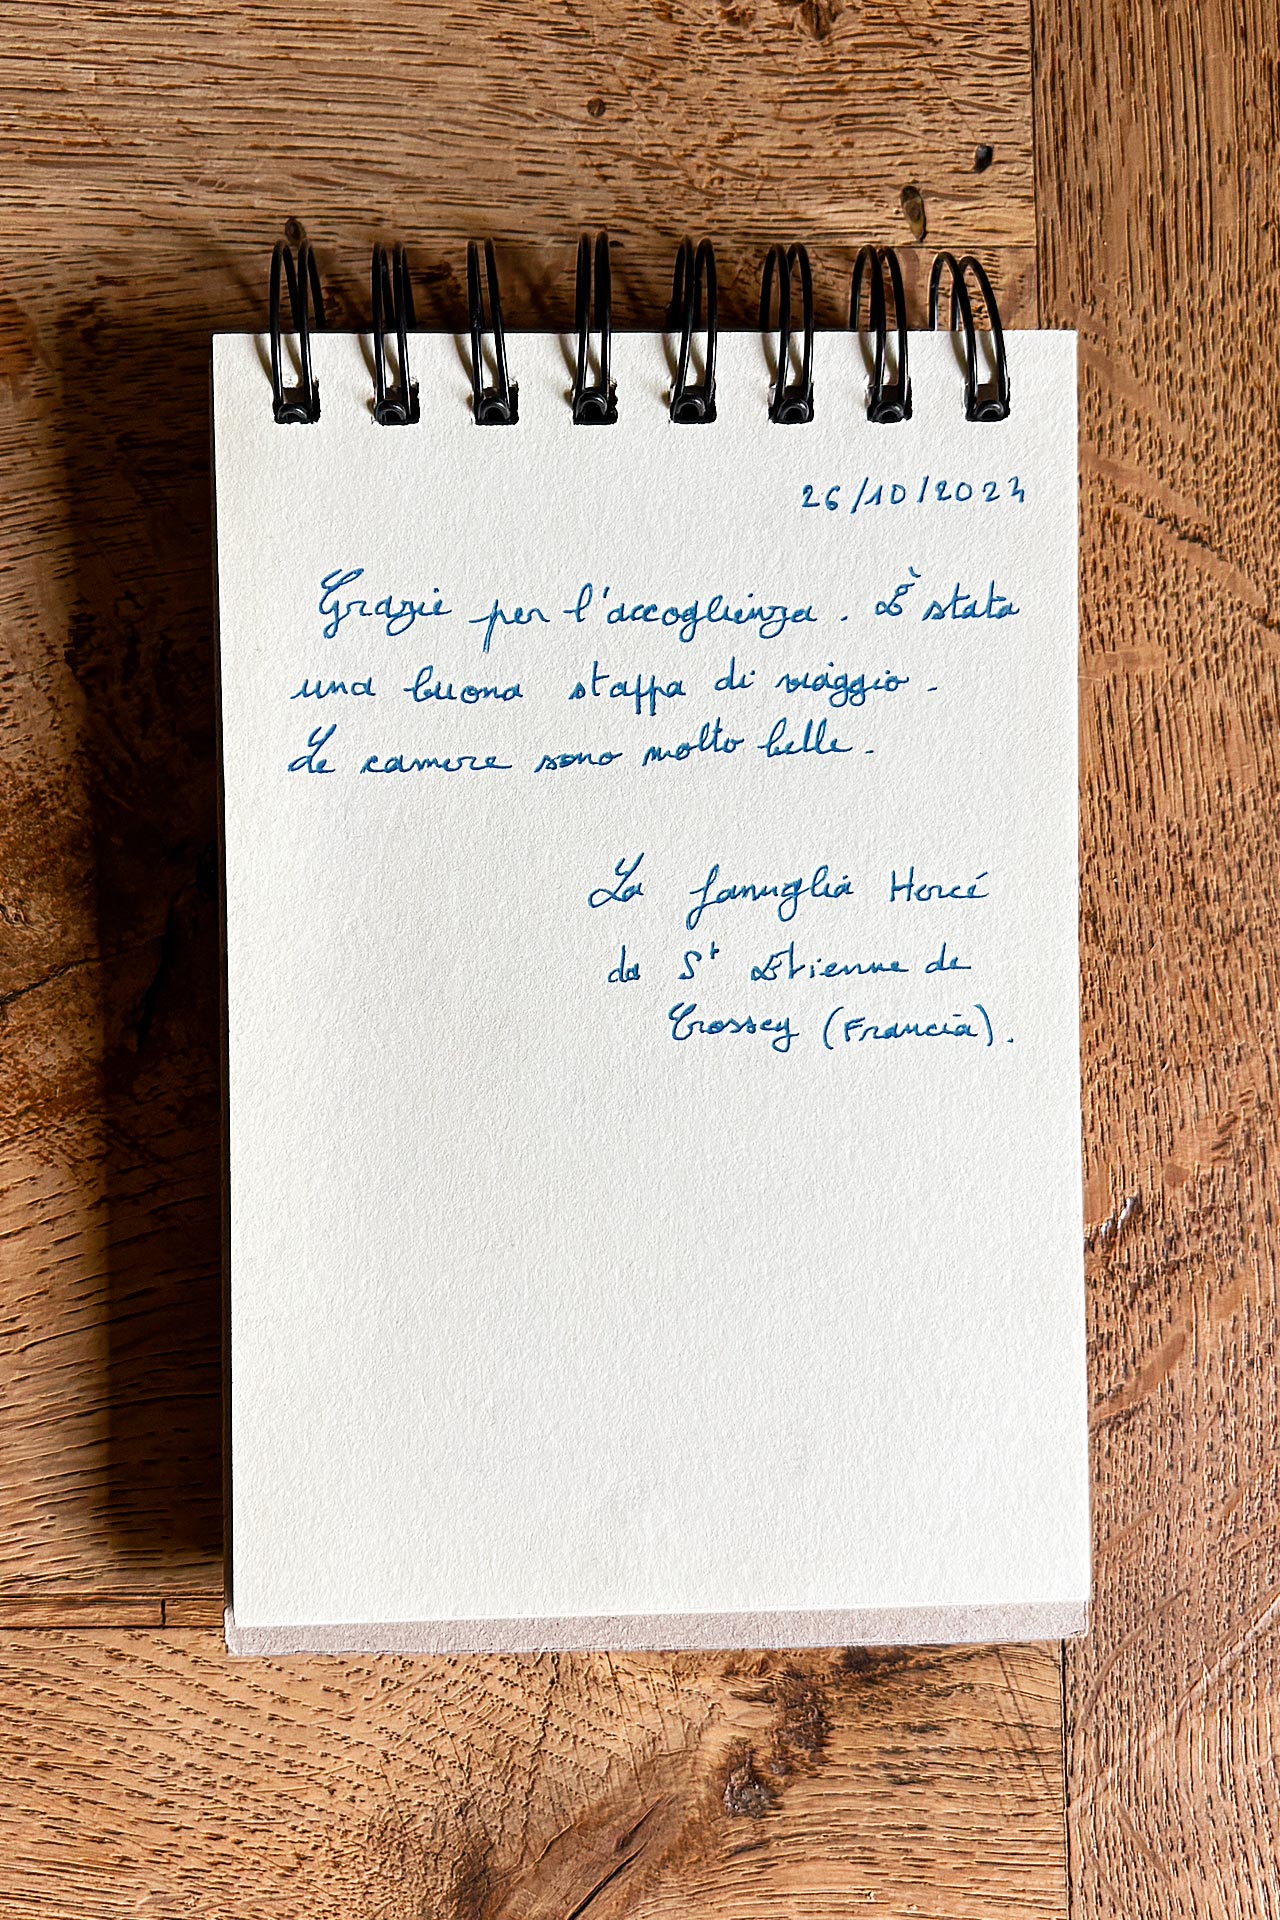 26/10/2024
Grazie per l'accoglienza. È stata
una buona stappa di viaggio.
Le camere sono molto belle.
La famiglia Horcé
da St Etienne de
Crossey (Francia).